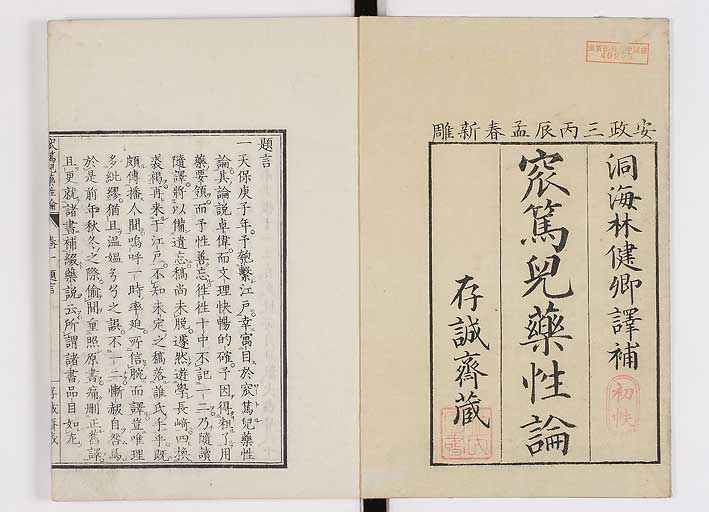 安政三丙辰孟春新雕
洞海林健卿譯補
窊篤兒藥性論
存誠齋藏
初帙
題言
一天保庚子年予匏繫江戶幸寓目於窊篤兒藥性
論其論說卓偉而文理快暢的確予因得粗了用
藥要領而予性善忘徃徃十中不記一二乃隨讀
隨譯將以備遺忘稿尚未脫遽然遊學長崎四換
裘褐再来于江戶不知未定之稿落誰氏手乎既
頗傳播人間嗚呼一時率迫所信腕而譯豈唯理
多紕繆猶且温媼芻芳之誤不一二慚赧自咎焉
於是前年秋冬之際偷間重照原書痛刪正舊譯
且更就諸書補綴藥說云所謂諸書品目如左
窊篤兒藥性論
卷一題言